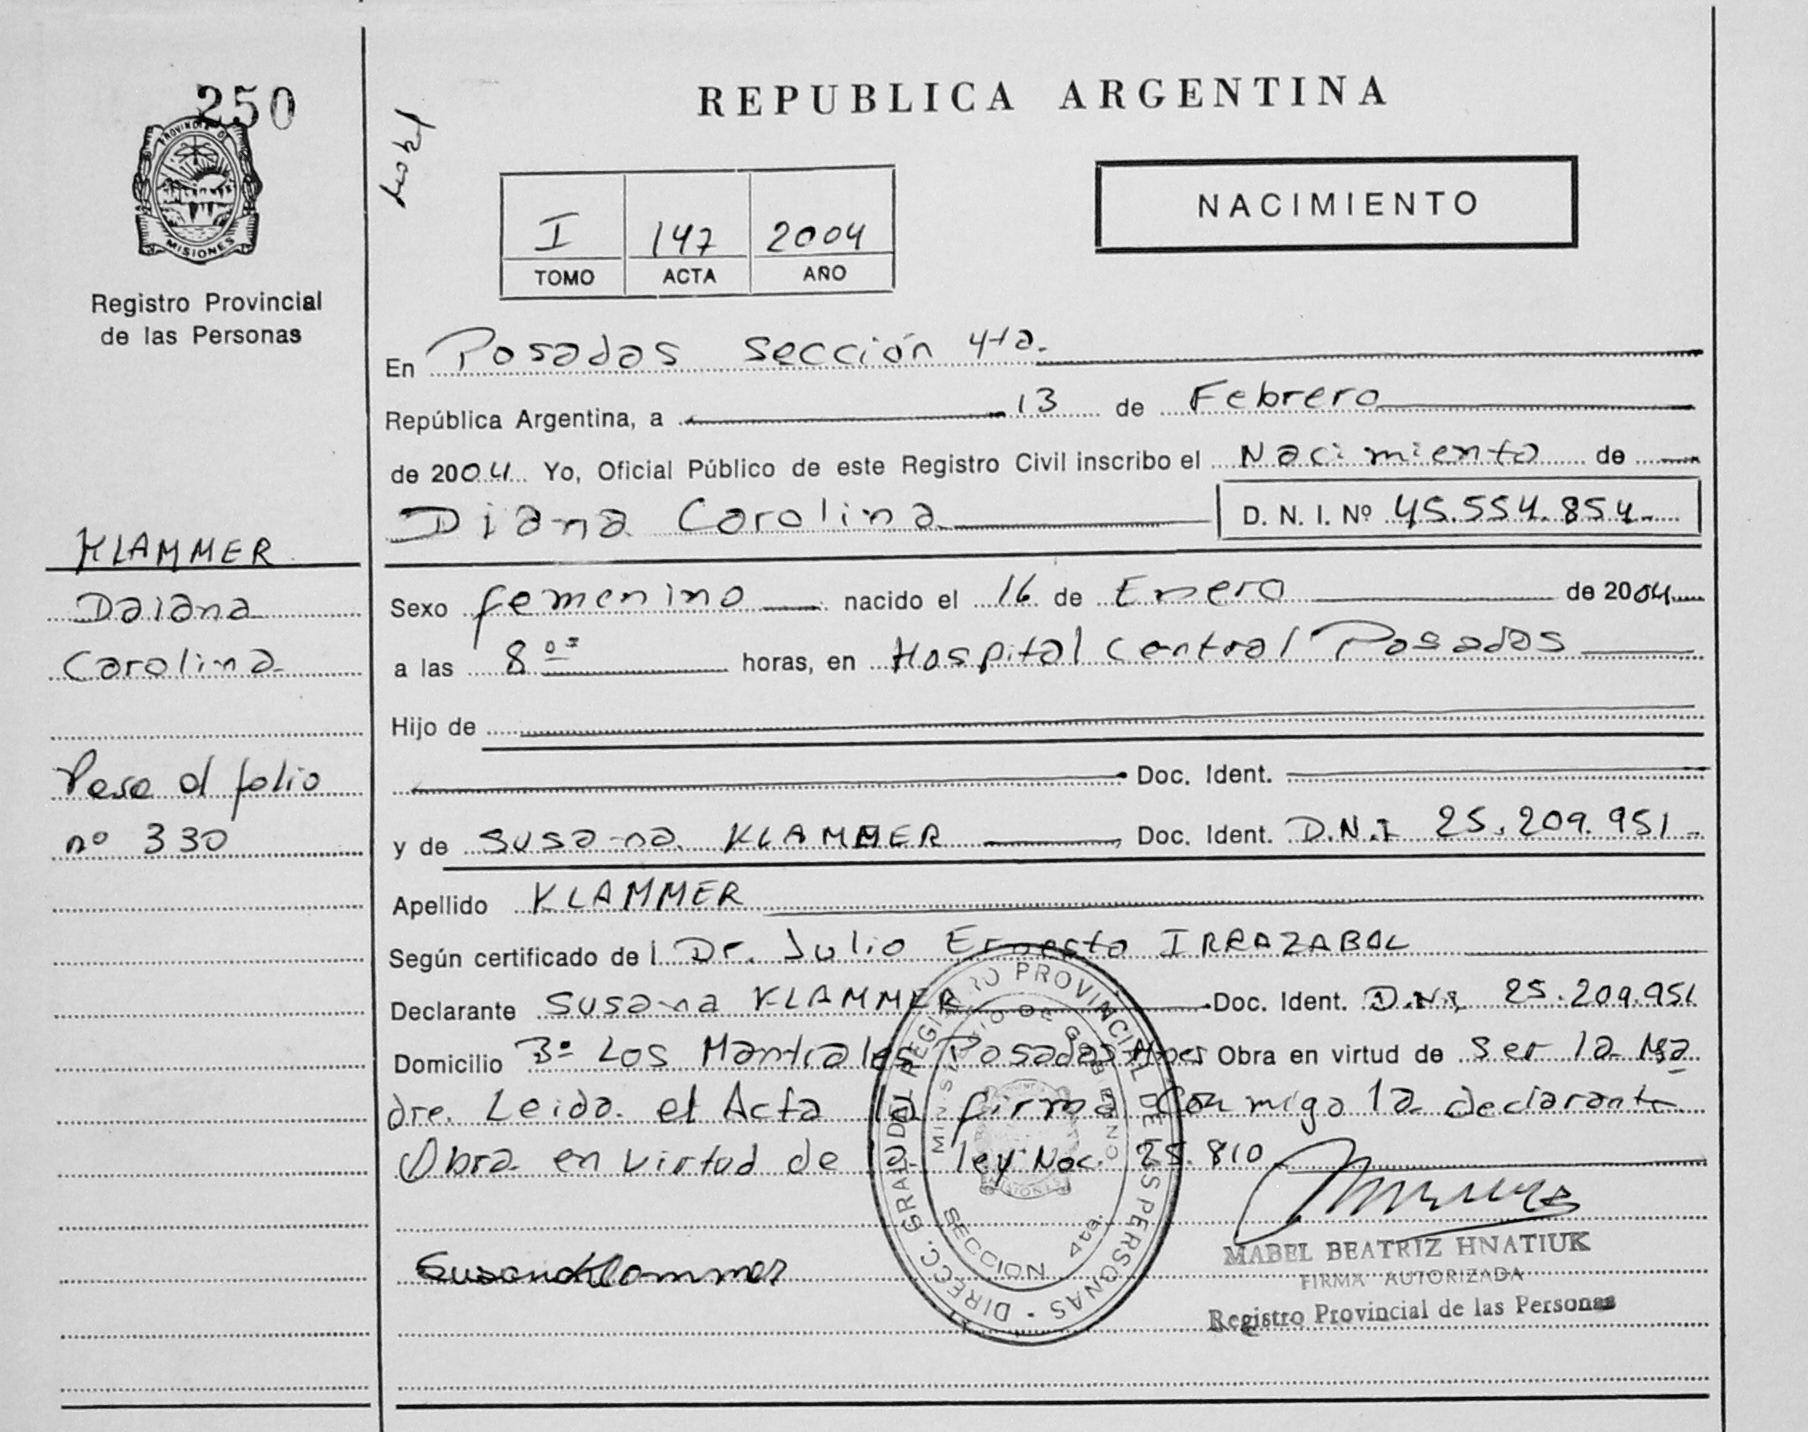 250
PROVINCIA DE
MISIONES
Registro Provincial
de las Personas
KLAMMER
Daiana
Carolina
Pase al folio
nº 330
REPUBLICA ARGENTINA
NACIMIENTO
I 147 2004
TOMO ACTA AÑO
En Posadas Sección 4ta.
República Argentina, a 13 de Febrero
de 2004 Yo, Oficial Público de este Registro Civil inscribo el Nacimiento de
Diana Carolina D. N. I. Nº 45.554.854
Sexo femenino nacido el 16 de Enero de 2004
a las 8 horas, en Hospital Central Posadas
Hijo de
Doc. Ident.
y de Susana KLAMMER Doc. Ident. D.N.I 25.209.951
Apellido KLAMMER
Según certificado del Dr. Julio Ernesto IRRAZABAL
Declarante Susana KLAMMER Doc. Ident. D.N.I. 25.209.951
Domicilio Bº Los Mantiales Posadas Mnes Obra en virtud de Ser la Ma
dre. Leida el Acta la firma Conmigo la declarante
Obra en virtud de la ley Nac. 25.810
Susana Klammer
DIRECC. GRAL. DEL REGISTRO PROVINCIAL DE LAS PERSONAS
MINISTERIO DE GOBIERNO
MISIONES
SECCION 4ta.
MABEL BEATRIZ HNATIUK
FIRMA AUTORIZADA
Registro Provincial de las Personas